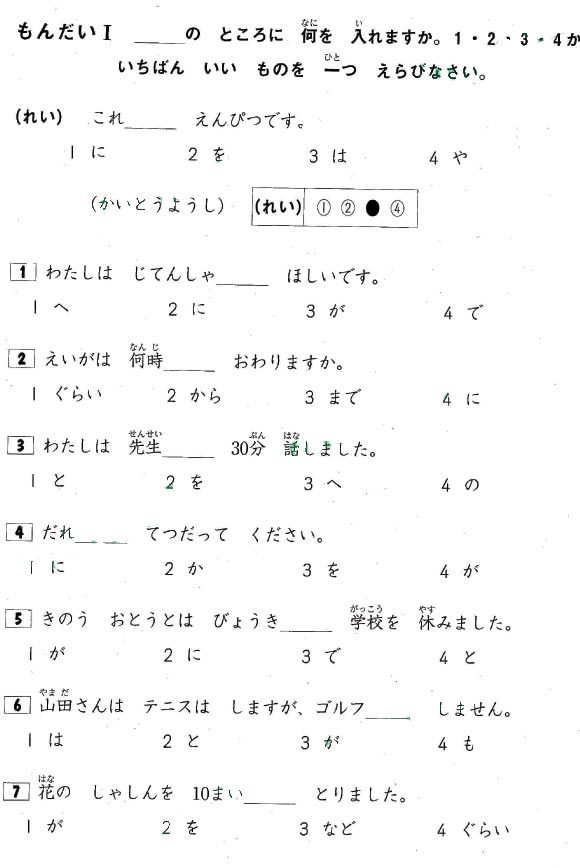 もんだいⅠ ＿＿＿の ところに 何を 入れますか。1・2・3・4か
いちばん いい ものを 一つ えらびなさい。
(れい) これ＿＿＿ えんぴつです。
1 に 2 を 3 は 4 や
(かいとうようし) (れい) ① ② ● ④
1 わたしは じてんしゃ＿＿＿ ほしいです。
1 へ 2 に 3 が 4 で
2 えいがは 何時＿＿＿ おわりますか。
1 ぐらい 2 から 3 まで 4 に
3 わたしは 先生＿＿＿ 30分 話しました。
1 と 2 を 3 へ 4 の
4 だれ＿＿＿ てつだって ください。
1 に 2 か 3 を 4 が
5 きのう おとうとは びょうき＿＿＿ 学校を 休みました。
1 が 2 に 3 で 4 と
6 山田さんは テニスは しますが、ゴルフ＿＿＿ しません。
1 は 2 と 3 が 4 も
7 花の しゃしんを 10まい＿＿＿ とりました。
1 が 2 を 3 など 4 ぐらい